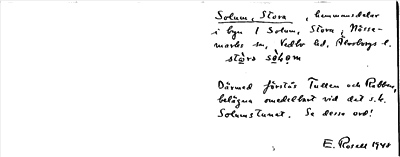 Solum, Stora, hemmansdelar
i byn 1 Solum, Stora, Nösse-
marks sn, Vedbo hd, Älvsborgs l.
stóra sòlɷm
Därmed förstås Tullen och Rabben,
belägna omedelbart vid det s.k.
Solumstunet. Se dessa ord!
E. Rosell 1948